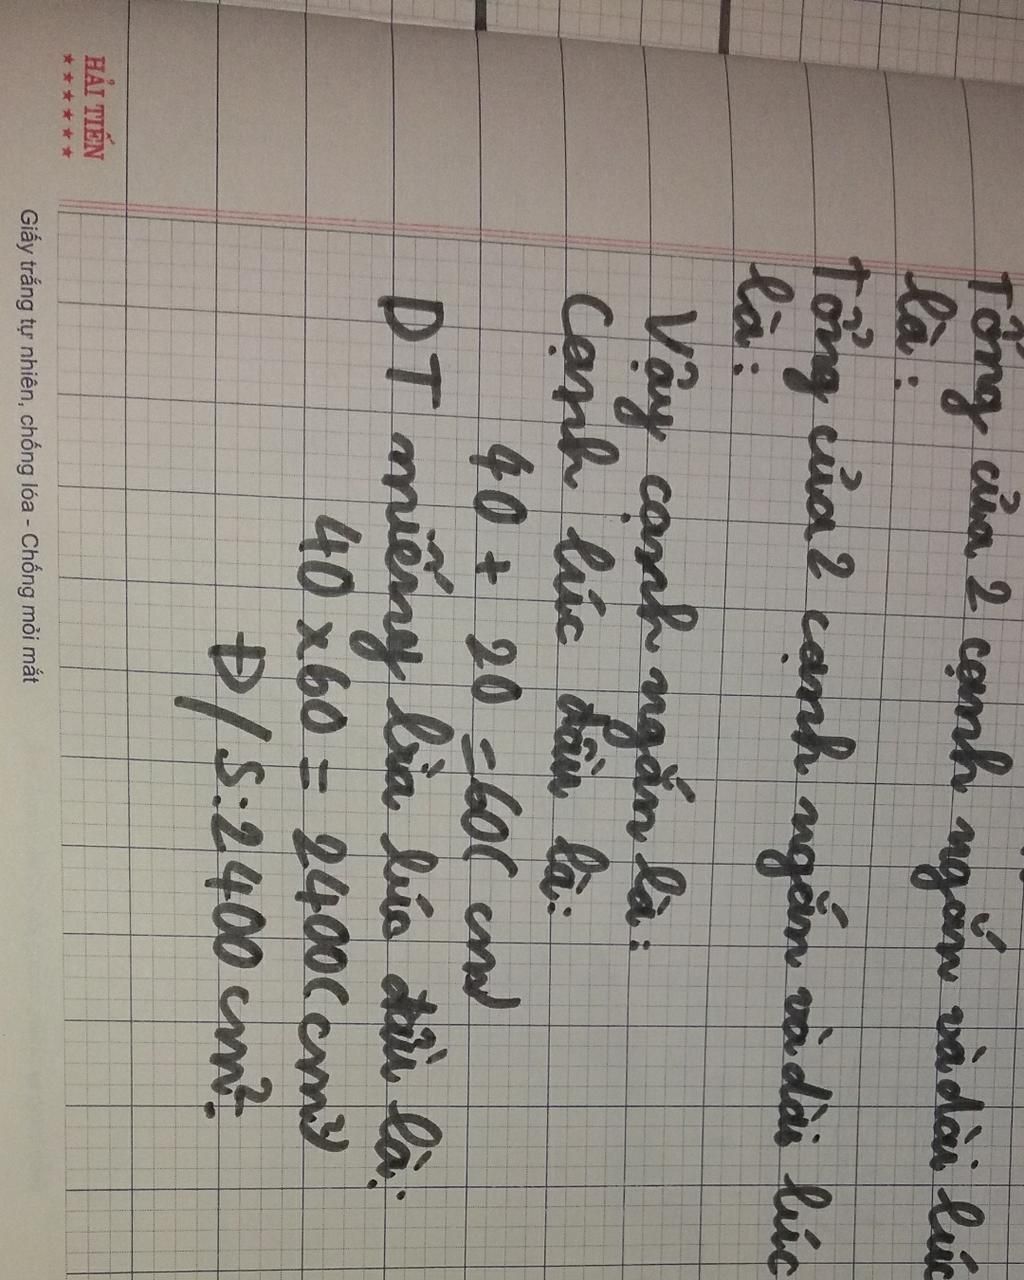 Tổng của 2 cạnh ngắn và dài lúc
là:
Tổng của 2 cạnh ngắn và dài lúc
là:
Vậy cạnh ngắn là:
Cạnh lúc đầu là:
40 + 20 = 60( cm)
DT miếng bìa lúc đầu là:
40 x 60 = 2400( cm²)
Đ/S: 2400 cm².
HẢI TIẾN
Giấy trắng tự nhiên, chống lóa - Chống mỏi mắt